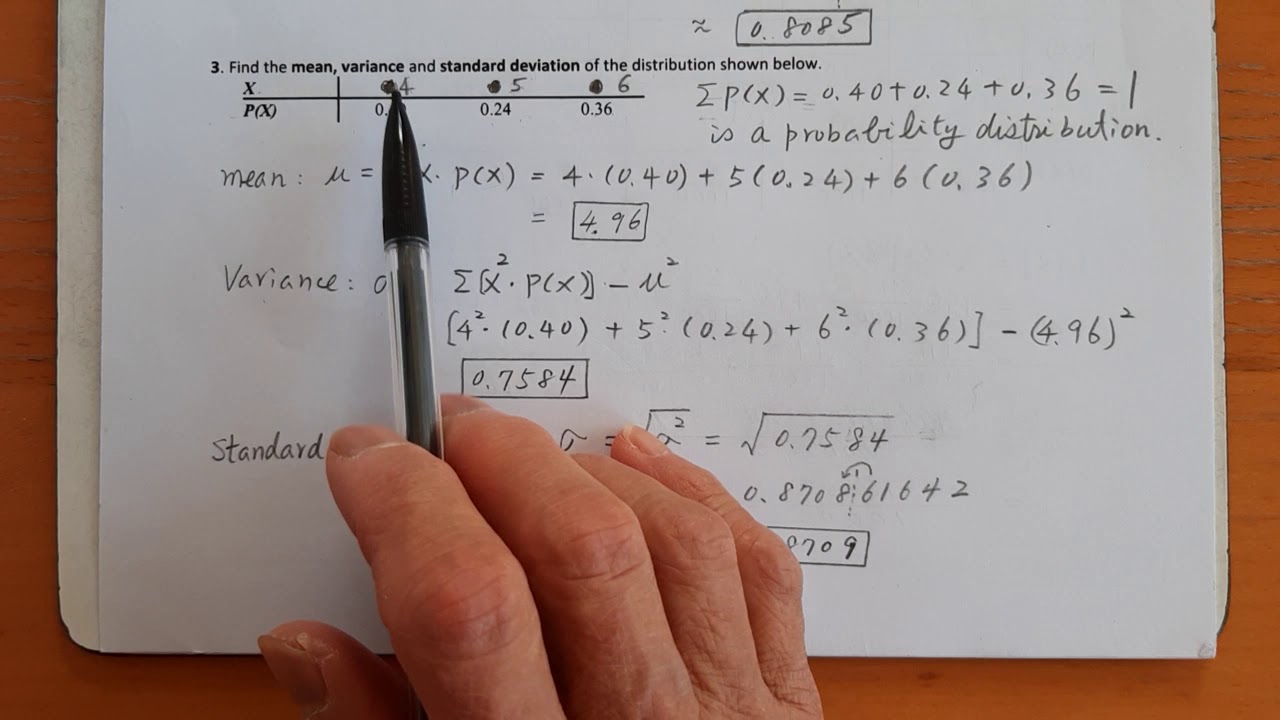 ≈ 0.8085
3. Find the mean, variance and standard deviation of the distribution shown below.
X 4 5 6
P(X) 0. 0.24 0.36
Σ P(X) = 0.40 + 0.24 + 0.36 = 1
is a probability distribution.
mean: μ = X · P(X) = 4·(0.40) + 5(0.24) + 6(0.36)
= 4.96
Variance: Σ[X²· P(X)] − μ²
[4²· (0.40) + 5²· (0.24) + 6²· (0.36)] − (4.96)²
0.7584
Standard σ = √σ² = √0.7584
0.870861642
8709